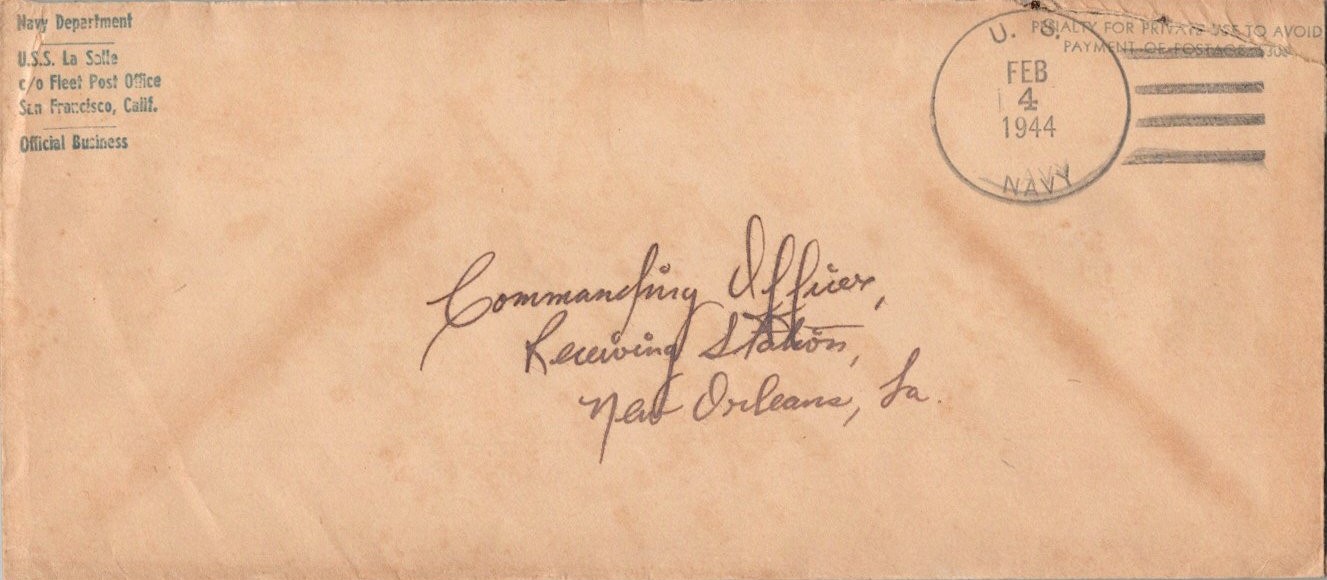 Navy Department
U.S.S. La Salle
c/o Fleet Post Office
San Francisco, Calif.
Official Business
PENALTY FOR PRIVATE USE TO AVOID
PAYMENT OF POSTAGE, $300
U. S.
FEB
4
1944
NAVY
Commanding Officer,
Receiving Station,
New Orleans, La.